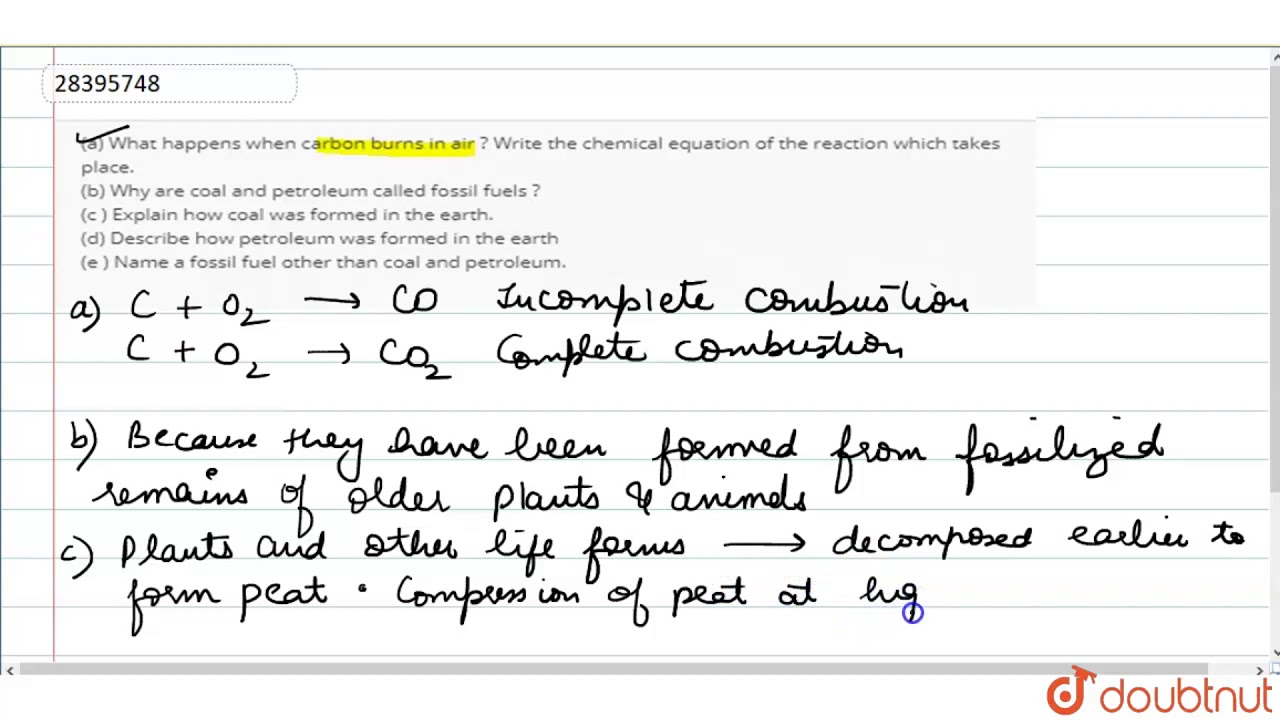 28395748
(a) What happens when carbon burns in air ? Write the chemical equation of the reaction which takes
place.
(b) Why are coal and petroleum called fossil fuels ?
(c ) Explain how coal was formed in the earth.
(d) Describe how petroleum was formed in the earth
(e ) Name a fossil fuel other than coal and petroleum.
a) C + O₂ → CO Incomplete combustion
C + O₂ → CO₂ Complete combustion
b) Because they have been formed from fossilized
remains of older plants & animals
c) Plants and other life forms → decomposed earlier to
form peat . Compression of peat at hig
doubtnut